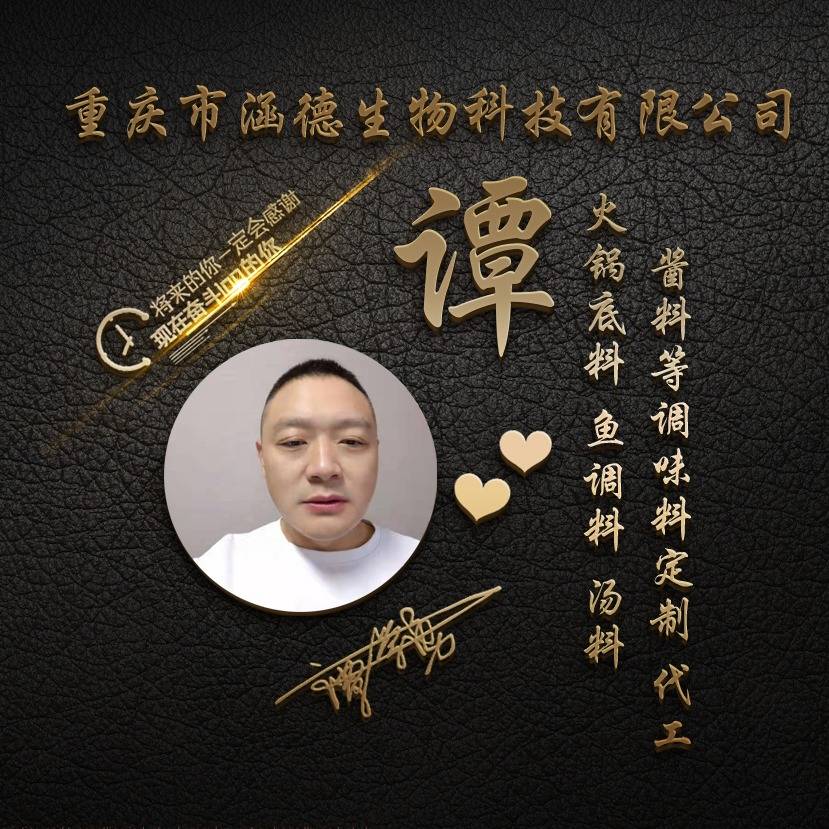 重庆市涵德生物科技有限公司
将来的你一定会感谢
现在奋斗的你
谭
火锅底料 鱼调料 汤料
酱料等调味料定制 代工